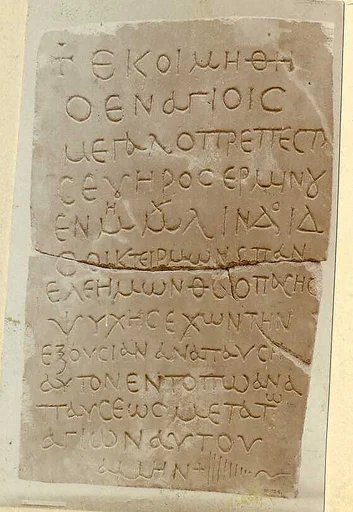 + ΕΚΟΙΜΗΘΗ
Ο ΕΝ ΑΓΙΟΙC
ΜΕΓΑΛΟΠΡΕΠΕCΤ
CΕΥΗΡΟC ΕΡΜΩΝΥ
ΕΝ ΜΗ ΙΝΔ ΙΔ
Ο ΟΙΚΤΕΙΡΜΩΝ C ΠΑΝ
ΕΛΕΗΜΩΝ ΘC Ο ΠΑCΗC
ΨΥΧΗC ΕΧΩΝ ΤΗΝ
ΕΞΟΥCΙΑΝ ΑΝΑΠΑΥCΗ
ΑΥΤΟΝ ΕΝ ΤΟΠΩ ΑΝΑ
ΠΑΥCΕΩC ΜΕΤΑ ΤΩ
ΑΓΙΩΝ ΑΥΤΟΥ
ΑΜΗΝ +